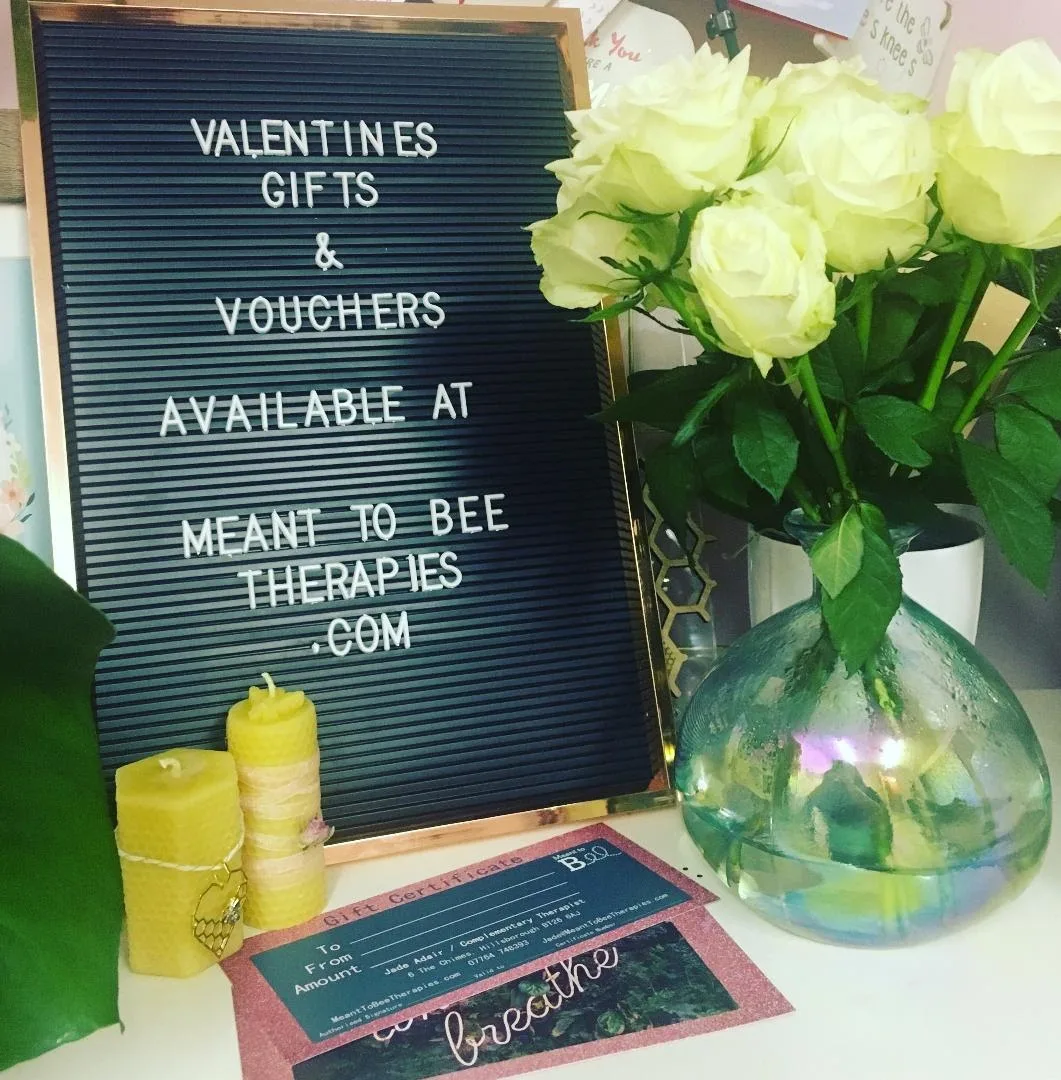 VALENTINES
GIFTS
&
VOUCHERS
AVAILABLE AT
MEANT TO BEE
THERAPIES
.COM
k You
RE A
e the
e's knees
Gift Certificate
Meant to
Bee
To
From
Amount
Jade Adair / Complementary Therapist
6 The Chimes, Hillsborough BT26 6AJ
MeantToBeeTherapies.com 07764 748393 Jade@MeantToBeeTherapies.com
Authorised Signature
Valid to
Certificate Number
breathe